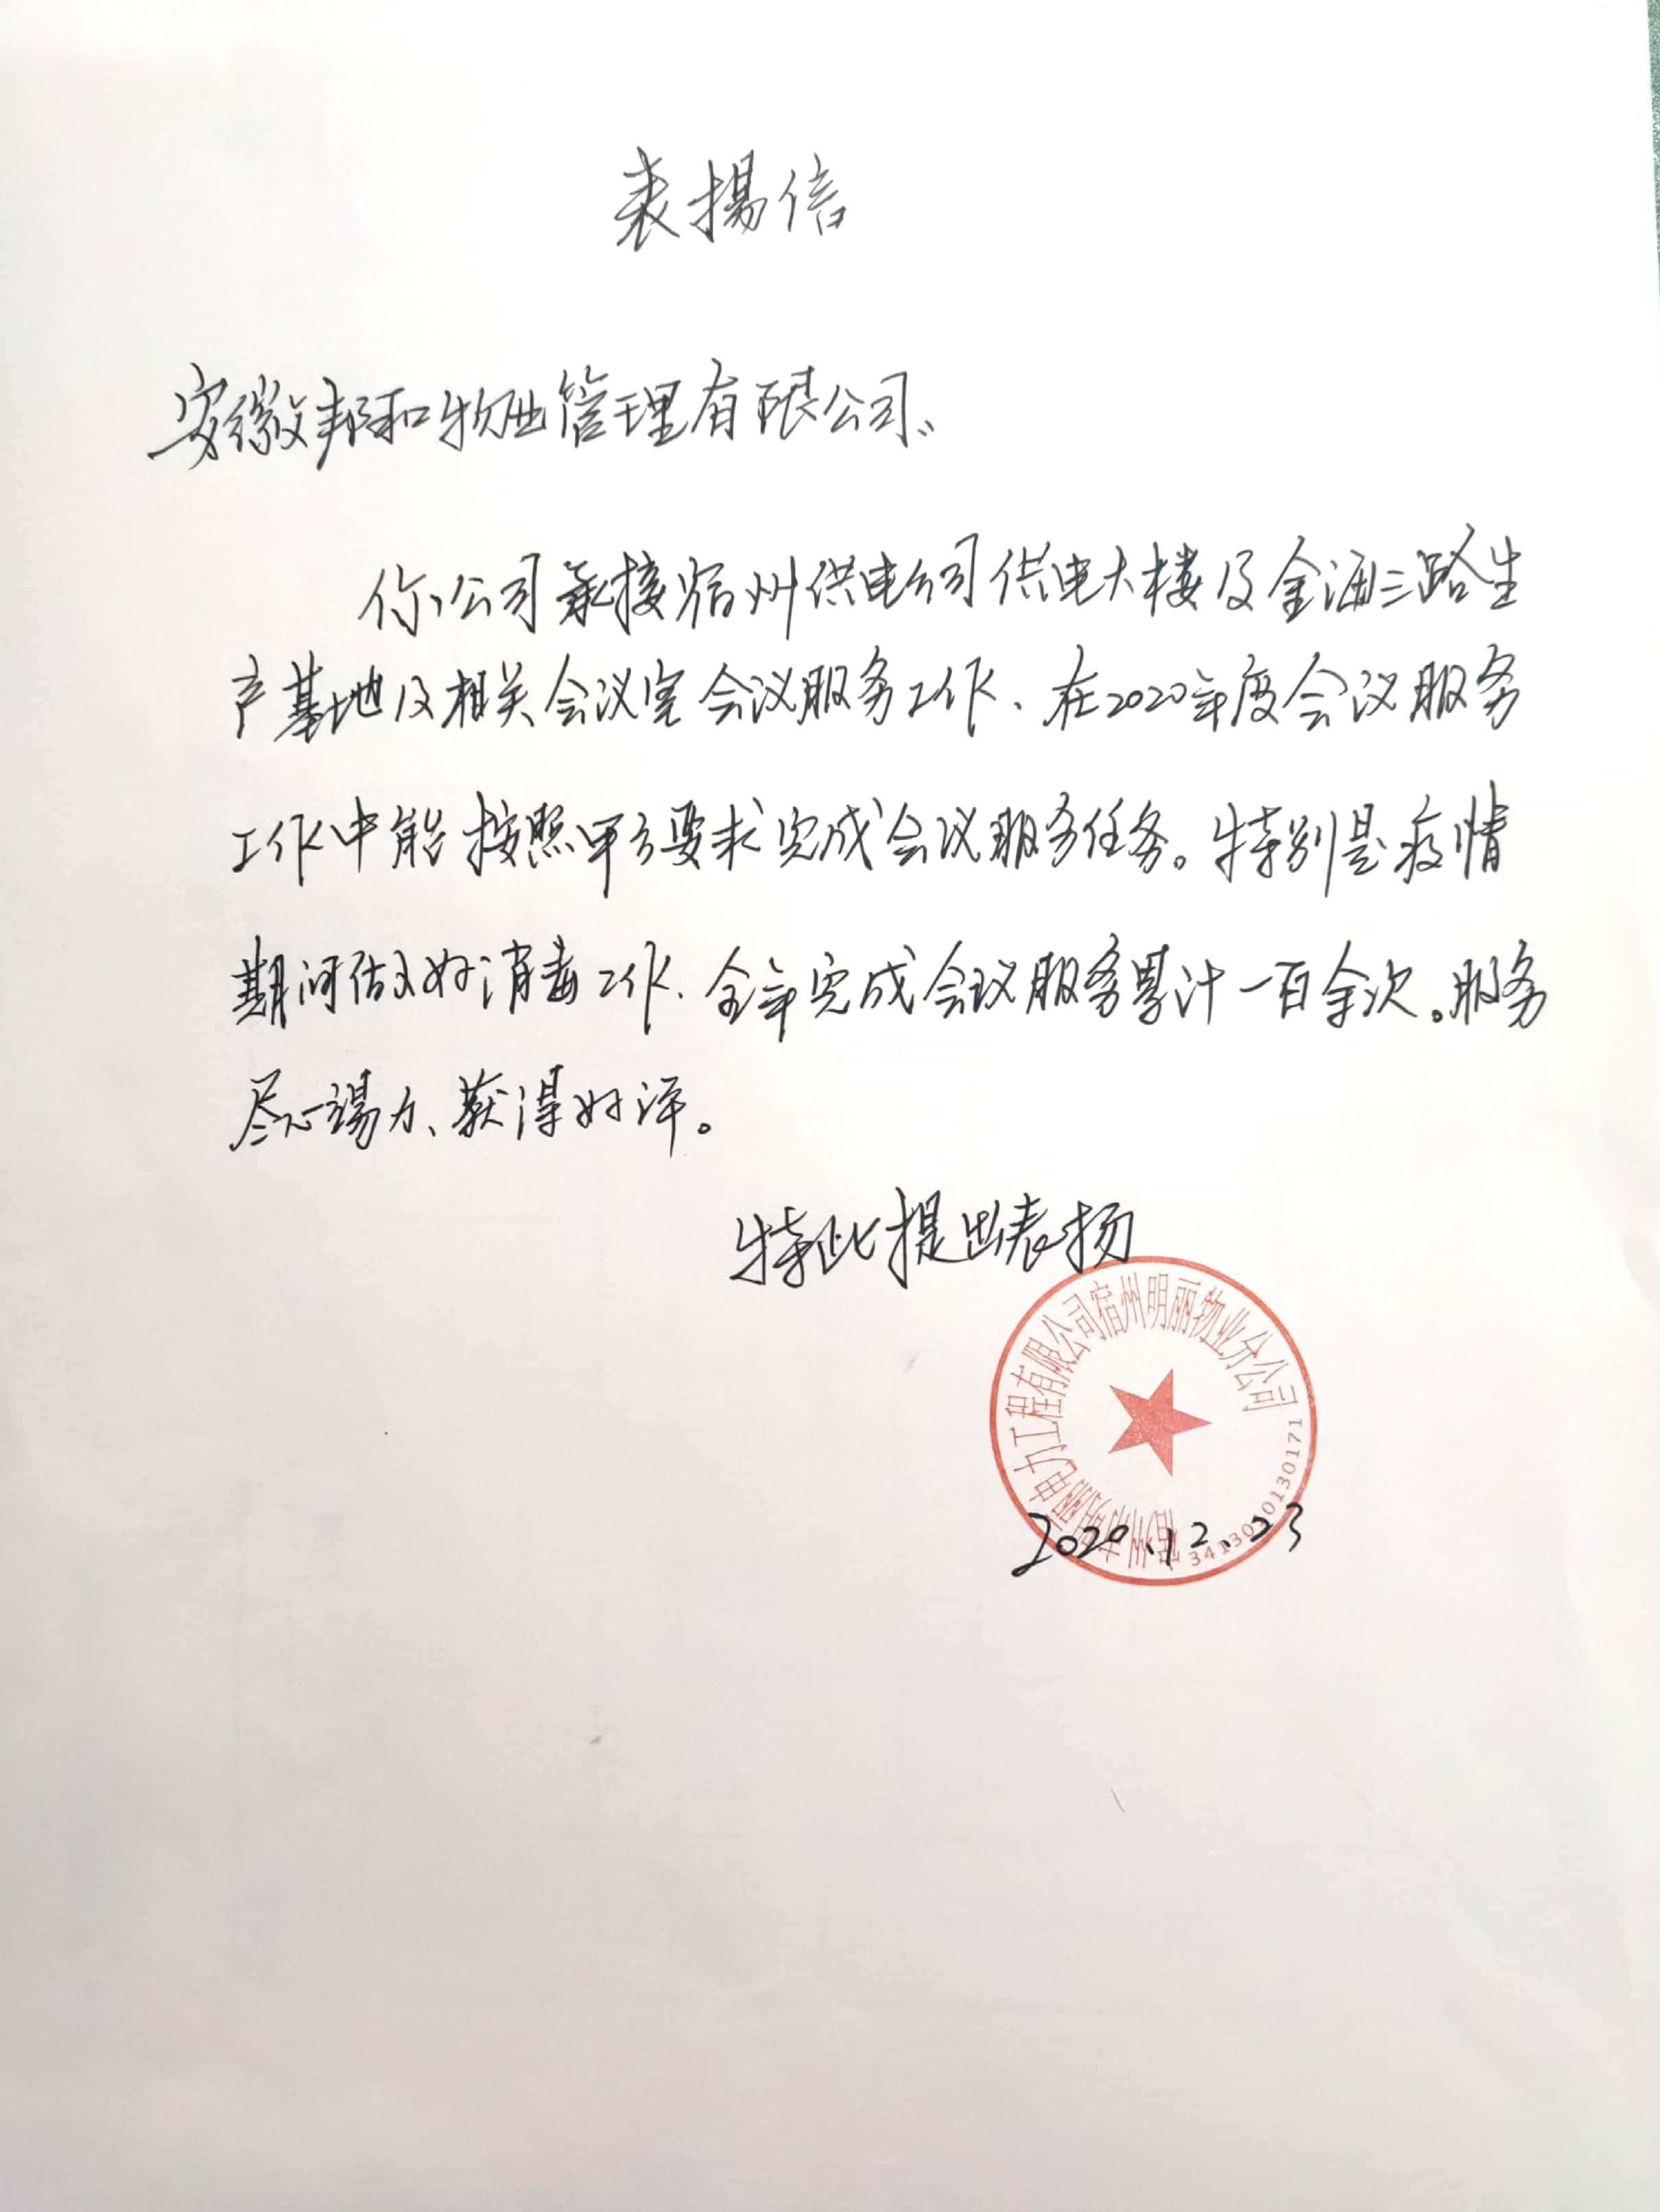 表揚信
安徽邦和物业管理有限公司：
你公司承接宿州供电公司供电大楼及金海三路生
产基地及相关会议室会议服务工作、在2020年度会议服务
工作中能按照甲方要求完成会议服务任务。特别是疫情
期间做好消毒工作、全年完成会议服务累计一百余次。服务
尽心竭力、获得好评。
特此提出表扬
宿州市明丽电力工程有限公司宿州明丽物业分公司
2020.12.23